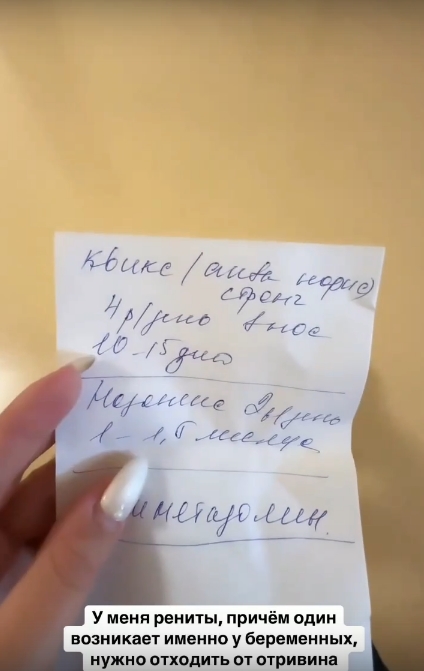 Квикс / аква норис
стронг
4 р/день в нос
10-15 дней
Назонекс 2 р/день
1-1,5 месяца
метазолин.
У меня рениты, причём один
возникает именно у беременных,
нужно отходить от отривина